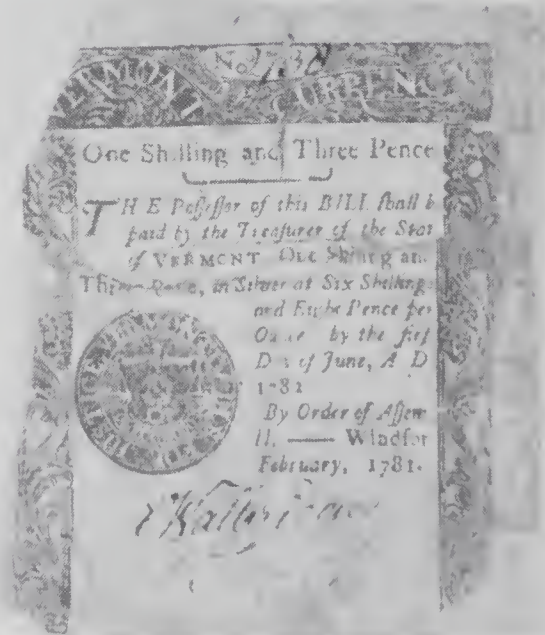 No
VERMONT CURRENCY
One Shilling and Three Pence
THE Poſſeſſor of this BILL ſhall b
paid by the Treaſurer of the Stat
of VERMONT One Shilling an
Three Pence, in Silver at Six Shillings
and Eight Pence per
Ounce by the firſt
Day of June, A D
1782
By Order of Aſſem
Windſor
February, 1781.